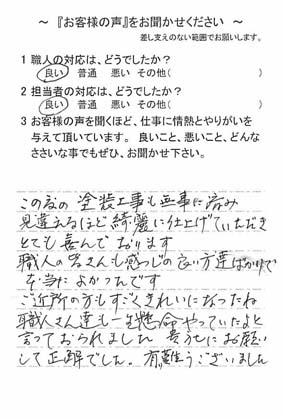 ～ 『お客様の声』をお聞かせください ～
差し支えのない範囲でお願いします。
1 職人の対応は、どうでしたか？
良い 普通 悪い その他( )
2 担当者の対応は、どうでしたか？
良い 普通 悪い その他( )
3 お客様の声を聞くほど、仕事に情熱とやりがいを
与えて頂いています。 良いこと、悪いこと、どんな
ささいな事でもぜひ、お聞かせ下さい。
この度の 塗装工事も無事に済み
見違えるほど綺麗に仕上げていただき
とても喜んでおります
職人の皆さんも感じの良い方達ばかりで
本当に よかったです
ご近所の方もすごくきれいになったね
職人さん達も一生懸命やっていたよと
言っておられました 貴社にお願い
して正解でした。有難うございました